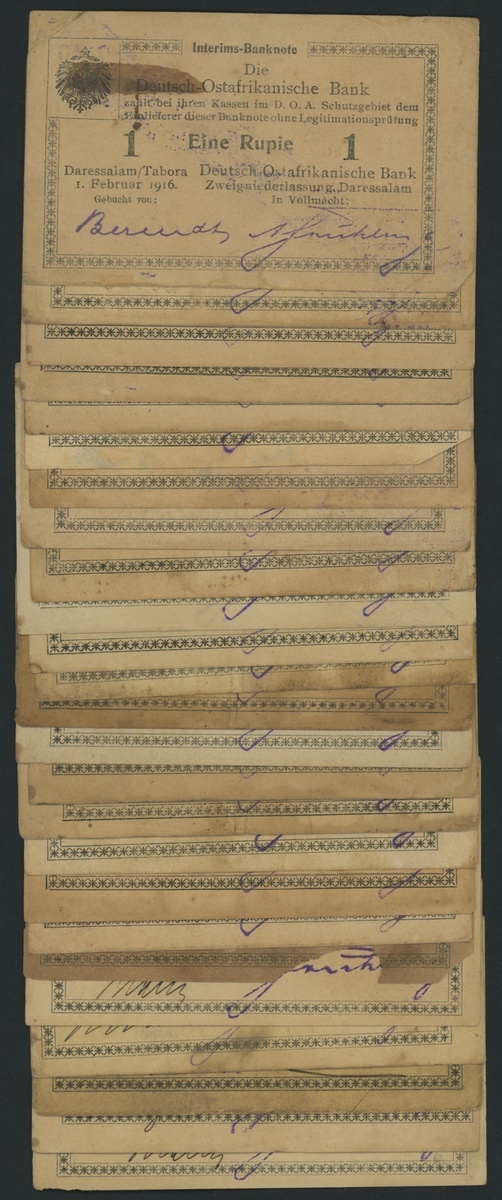 Interims-Banknote
Die
Deutsch-Ostafrikanische Bank
zahlt bei ihren Kassen im D. O. A. Schutzgebiet dem
Einlieferer dieser Banknote ohne Legitimationsprüfung
1 Eine Rupie 1
Daressalam/Tabora Deutsch-Ostafrikanische Bank
1. Februar 1916. Zweigniederlassung Daressalam
Gebucht von: In Vollmacht:
Berendt